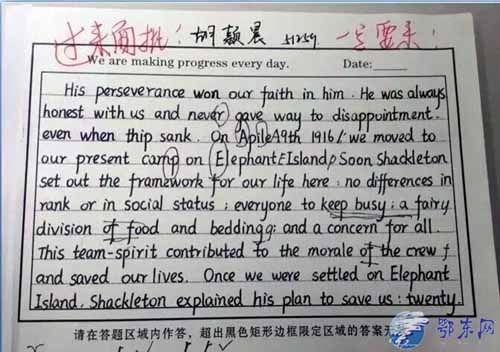 过来面批! 胡颖晨 51259 一定要来!
We are making progress every day. Date:
His perseverance won our faith in him. He was always
honest with us and never gave way to disappointment.
even when thip sank. On Apile A9th 1916/: we moved to
our present camp on Elephant Island. Soon Shackleton
set out the framework for our life here: no differences in
rank or in social status; everyone to keep busy; a fairy
division of food and bedding; and a concern for all.
This team-spirit contributed to the morale of the crew
and saved our lives. Once we were settled on Elephant
Island. Shackleton explained his plan to save us: twenty
请在答题区域内作答,超出黑色矩形边框限定区域的答案无
鄂东网